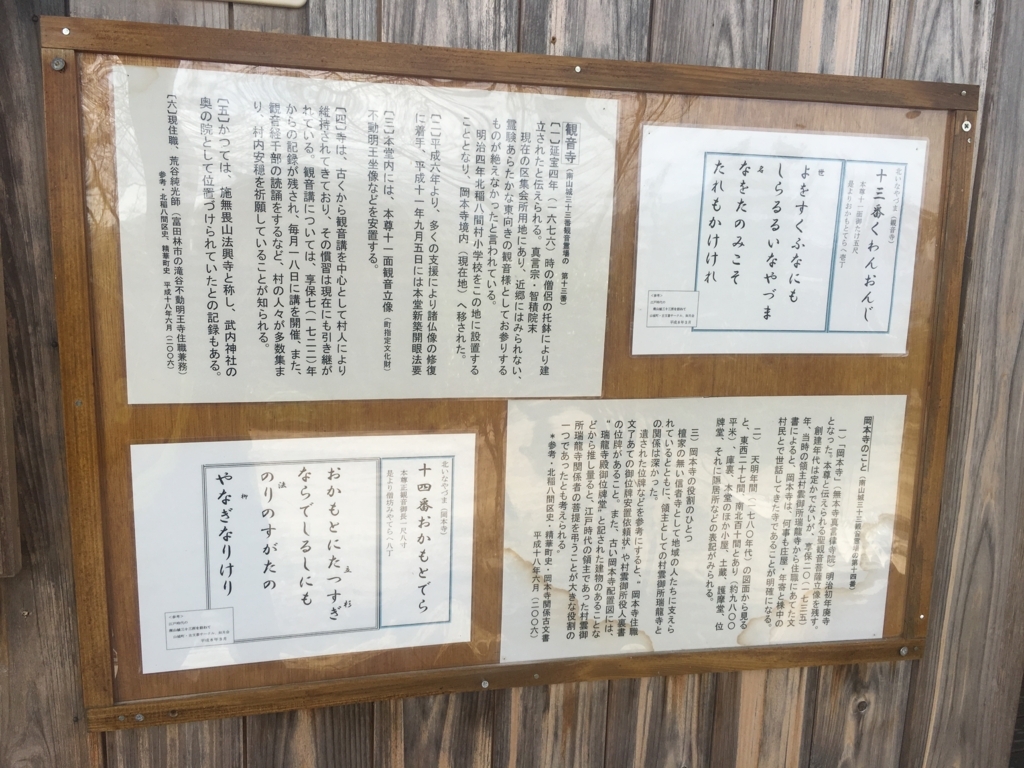 北いなやづま（観音寺）
十三番くわんおんじ
本尊十一面御たけ五尺
是よりおかもとでらへ壱丁
よをすくふなにも
世
しらるるいなやづま
なをたのみこそ
名
たれもかけけれ
観音寺（南山城三十三番観音霊場の　第十三番）
［一］延宝四年（一六七六）時の僧侶の托鉢により建
立されたと伝えられる。真言宗・智積院末
現在の区集会所用地にあり、近郷にはみられない、
霊験あらたかな東向きの観音様としてお参りする
ものが絶えなかったと言われている。
明治四年北稲八間村小学校をこの地に設置する
こととなり、岡本寺境内（現在地）へ移された。
［二］平成六年より、多くの支援により諸仏像の修復
に着手、平成十一年九月五日には本堂新築開眼法要
［三］本堂内には、本尊十一面観音立像（町指定文化財）
不動明王坐像などを安置する。
［四］寺は、古くから観音講を中心として村人により
維持されてきており、その慣習は現在にも引き継が
れている。観音講については、享保七（一七二二）年
からの記録が残され、毎月一八日に講を開催、また、
観音経千部の読誦をするなど、村の人々が多数集ま
り、村内安穏を祈願していることが知られる。
［五］かつては、施無畏山法興寺と称し、武内神社の
奥の院として位置づけられていたとの記録もある。
［六］現住職、荒谷純光師（富田林市の滝谷不動明王寺住職兼務）
参考・北稲八間区史、精華町史　平成十八年六月（二〇〇六）
岡本寺のこと（南山城三十三観音霊場第十四番）
一）「岡本寺」（無本寺真言律寺院）明治初年廃寺
となった。本尊と伝えられる聖観音菩薩立像を残す。
創建年代は定かでないが、享保二〇（一七三五）
年、当時の領主村雲御所瑞龍寺から住職にあてた文
書によると、岡本寺は、何事も庄屋・年寄と株中の
村民とで世話してきた寺であることが明確になる。
二）天明年間（一七八〇年代）の図面から見る
と、東西二十七間、南北百十間とあり（約九八〇〇
平米）、庫裏、本堂のほか小屋、土蔵、護摩堂、位
牌堂、それに隠居所などの表記がみられる。
三）岡本寺の役割のひとつ
檀家の無い信者寺として地域の人たちに支えら
れているとともに、領主としての村雲御所瑞龍寺と
の関係は深かった。
遺された位牌などを参考にすると、“岡本寺住職
文了あての御位牌安置依頼状”や村雲御所役人裏書
の位牌があること。また、古い岡本寺配置図には、
“瑞龍寺殿御位牌堂”と記された建物のあることな
どから推し量ると、江戸時代の領主であった村雲御
所瑞龍寺関係者の菩提を弔うことが大きな役割の
一つであったとも考えられる
＊参考・北稲八間区史・精華町史・岡本寺関係古文書
平成十八年六月（二〇〇六）
北いなやづま（岡本寺）
十四番おかもとでら
本尊正観音御長一尺八寸
是より僧坊みやでらへ八丁
おかもとにたつすぎ
立　杉
ならでしるしにも
のりのすがたの
法
やなぎなりけり
柳